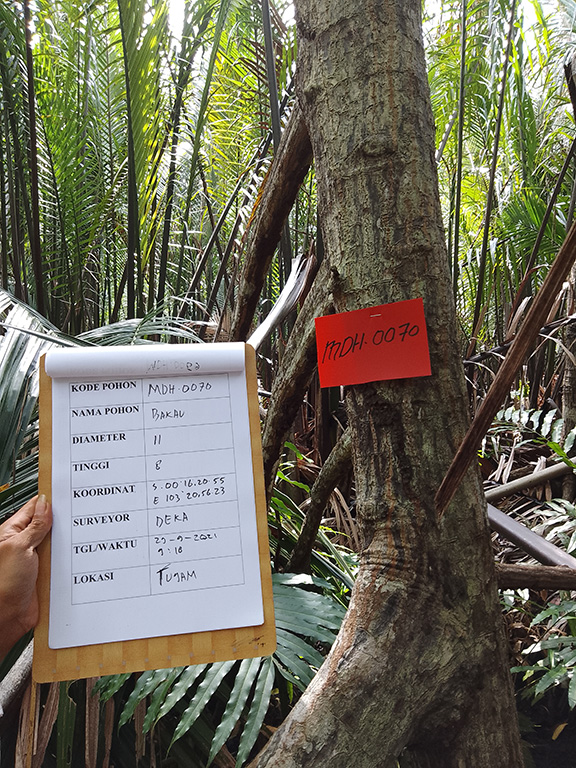 KODE POHON MDH-0070
NAMA POHON BAKAU
DIAMETER 11
TINGGI 8
KOORDINAT S. 00°16.20.55
E 103°20.56.23
SURVEYOR DEKA
TGL/WAKTU 29-9-2021
9:18
LOKASI TUGAM
MDH-0070